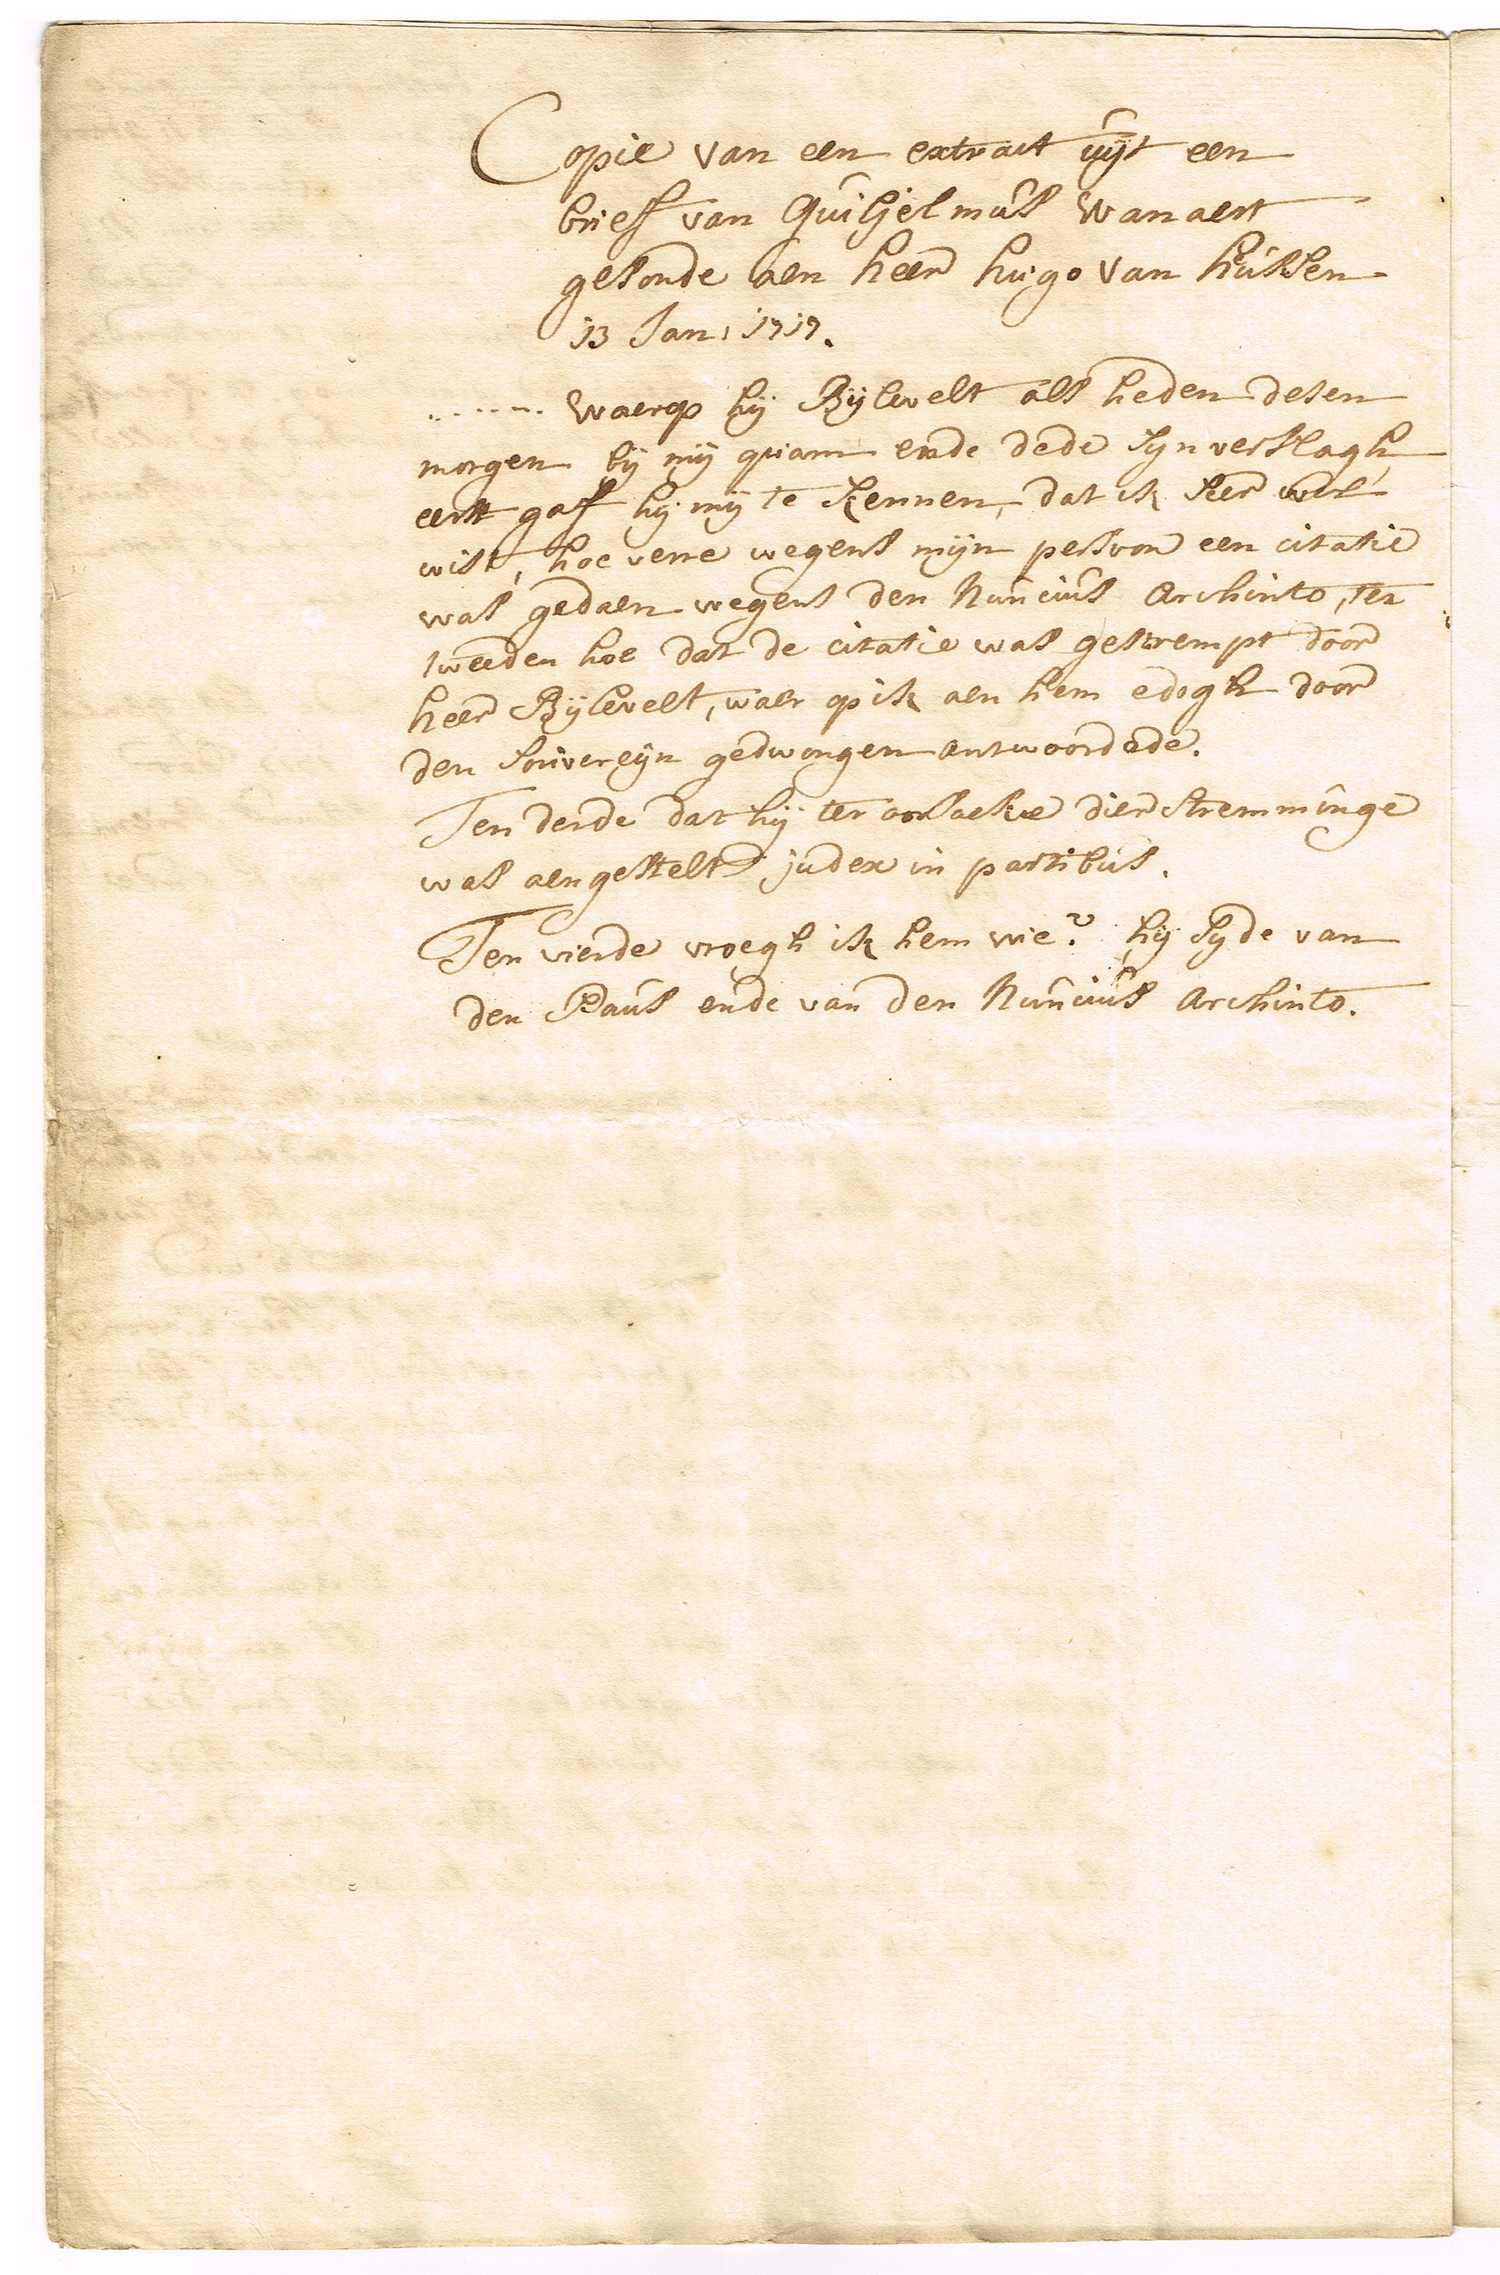 Copie van een extract uÿt een
brief van Guiljelmus Wanaert
gesonde aen heer hugo van hussen
13 Jan: 1717.
...... Waerop hÿ Bÿlevelt als heden desen
morgen bÿ mÿ quam ende dede syn verslagh,
eerst gaf hÿ mÿ te kennen, dat ik seer wel
wist, hoe verre wegens mÿn persoon een citatie
was gedaen wegens den Nuncius Archinto, ten
tweeden hoe dat de citatie was gestrempt door
heer Bÿlevelt, waer op ik aen hem edogh door
den souvereÿn gedwongen antwoordede.
Ten derde dat hÿ ter oorsaeke dier stremminge
was aengestelt judex in partibus.
Ten vierde vroegh ik hem wie? hÿ syde van
den Paus ende van den Nuncius Archinto.